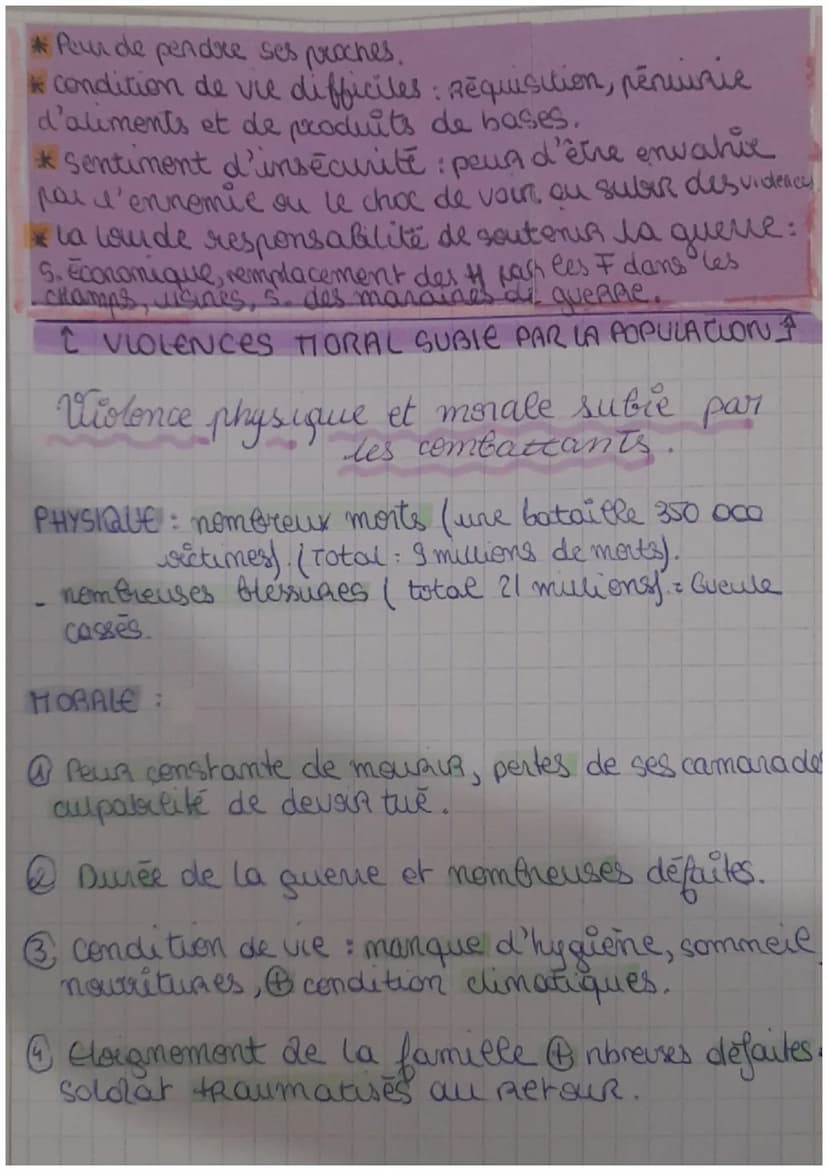 * Peur de perdre ses proches.
* condition de vie difficiles : Réquisition, pénurie
d'aliments et de produits de bases.
* Sentiment d'insécurité : peur d'être envahie
par l'ennemie ou le choc de voir, ou subir des violences
* La lourde responsabilité de soutenir la guerre :
S. économique, remplacement des H par les F dans les
champs, usines, S. des marraines de guerre.
[ VIOLENCES MORAL SUBIE PAR LA POPULATION ↑
Violence physique et morale subie par
les combattants.
PHYSIQUE : nombreux morts (une bataille 350 000
victimes). (Total : 9 millions de morts).
- nombreuses blessures ( total 21 millions). = Gueule
cassés.
MORALE :
① Peur constante de mourir, pertes de ses camarades
culpabilité de devoir tué.
② Durée de la guerre et nombreuses défaites.
③ condition de vie : manque d'hygiène, sommeil,
nourritures, ⊕ condition climatiques.
④ Eloignement de la famille ⊕ nbreuses défaites.
soldat traumatisés au retour.